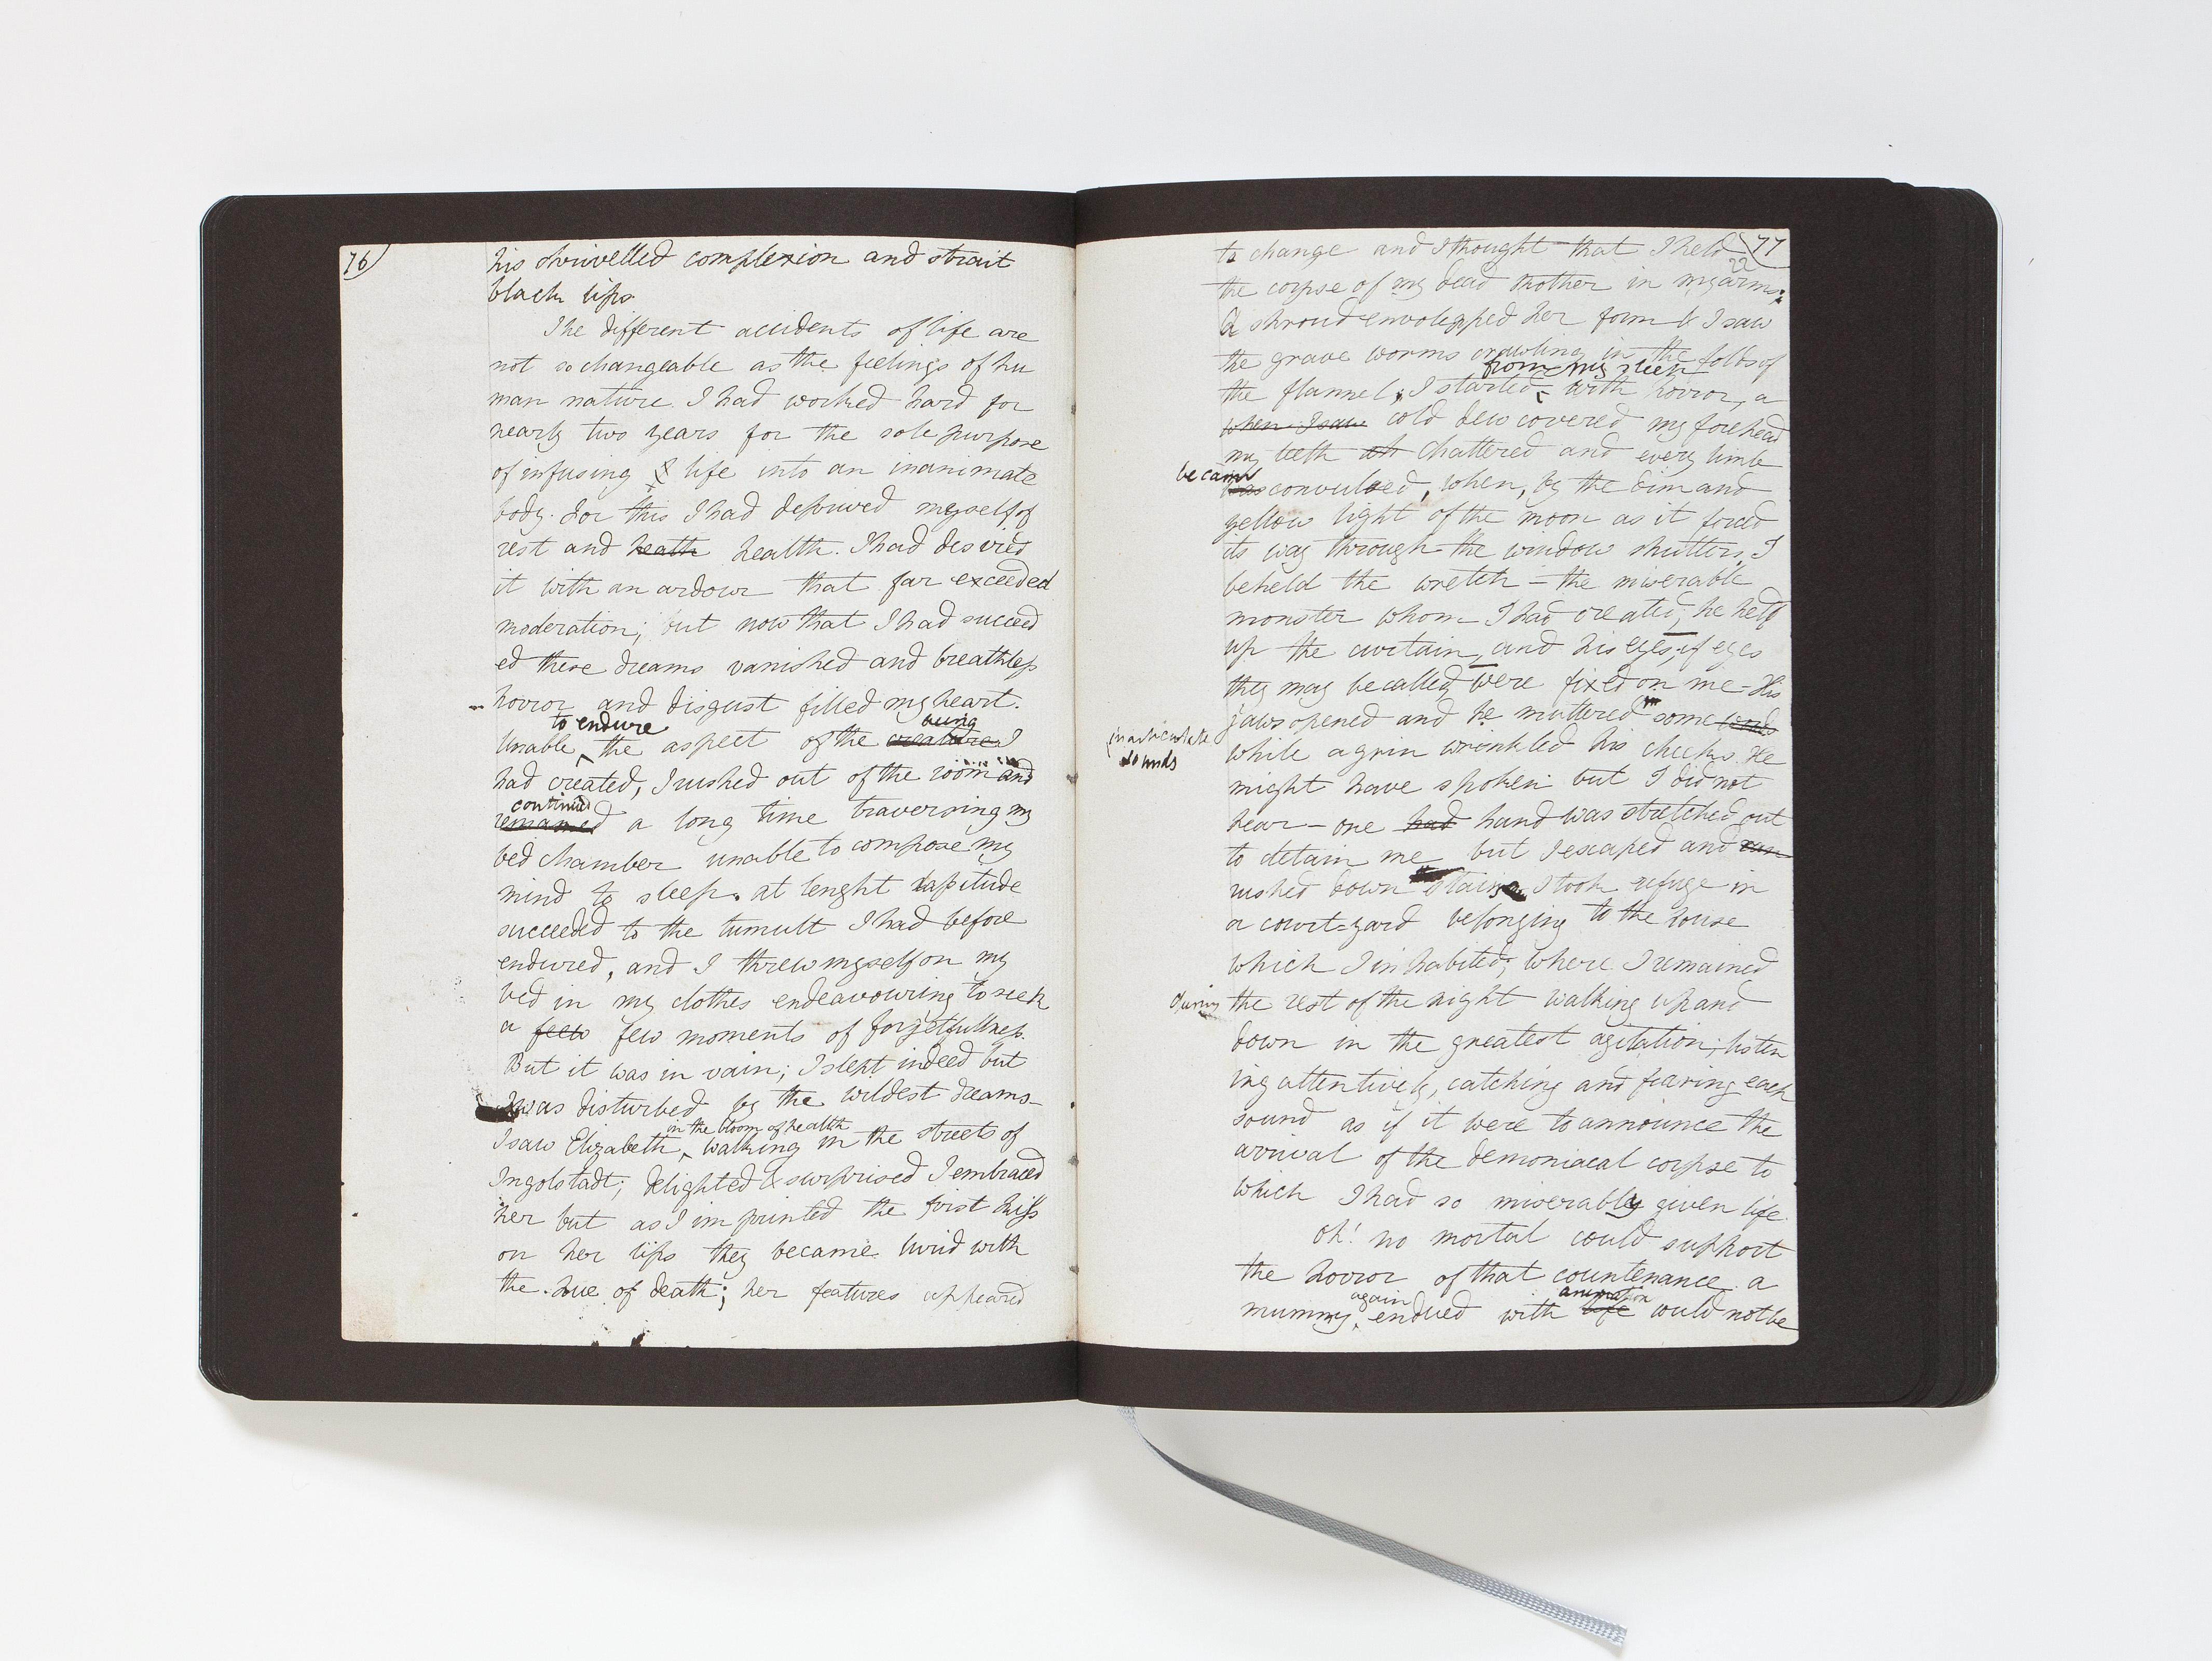 76
his shrivelled complexion and strait
black lips
The different accidents of life are
not so changeable as the feelings of hu
man nature. I had worked hard for
nearly two years for the sole purpose
of infusing life into an inanimate
body. For this I had deprived myself of
rest and heath health. I had desired
it with an ardour that far exceeded
moderation; but now that I had succeed
ed these dreams vanished and breathless
horror and disgust filled my heart.
to endure being
Unable ^ the aspect of the creature I
had created, I rushed out of the room and
continued
remained a long time traversing my
bed chamber unable to compose my
mind to sleep. at lenght lassitude
succeeded to the tumult I had before
endured, and I threw myself on my
bed in my clothes endeavouring to seek
a feew few moments of forgetfullness.
But it was in vain; I slept indeed but
I was disturbed by the wildest dreams—
in the bloom of health
I saw Elizabeth ^ walking in the streets of
Ingolstadt; delighted & surprised I embraced
her but as I imprinted the first kiss
on her lips they became livid with
the hue of death; her features appeared
77
to change and I thought that I held
22
the corpse of my dead mother in my arms;
a shroud envolepped her form & I saw
the grave worms crawling in the folds of
from my sleep
the flannel; I started ^ with horror, a
when I saw cold dew covered my forehead
my teeth chattered and every limb
became
was convulsed, when, by the dim and
yellow light of the moon as it forced
its way through the window shutters, I
beheld the wretch — the miserable
monster whom I had created; he held
up the curtain, and his eyes, if eyes
they may be called, were fixed on me— His
jaws opened and he muttered some words
inarticulate
sounds
while a grin wrinkled his cheeks. He
might have spoken but I did not
hear — one had hand was stretched out
to detain me but I escaped and ran
rushed down stairs. I took refuge in
a court-yard belonging to the house
which I inhabited; where I remained
during the rest of the night walking up and
down in the greatest agitation; listen
ing attentively, catching and fearing each
sound as if it were to announce the
arrival of the demoniacal corpse to
which I had so miserably given life.
Oh! no mortal could support
the horror of that countenance. a
again animation
mummy ^ endued with life could not be